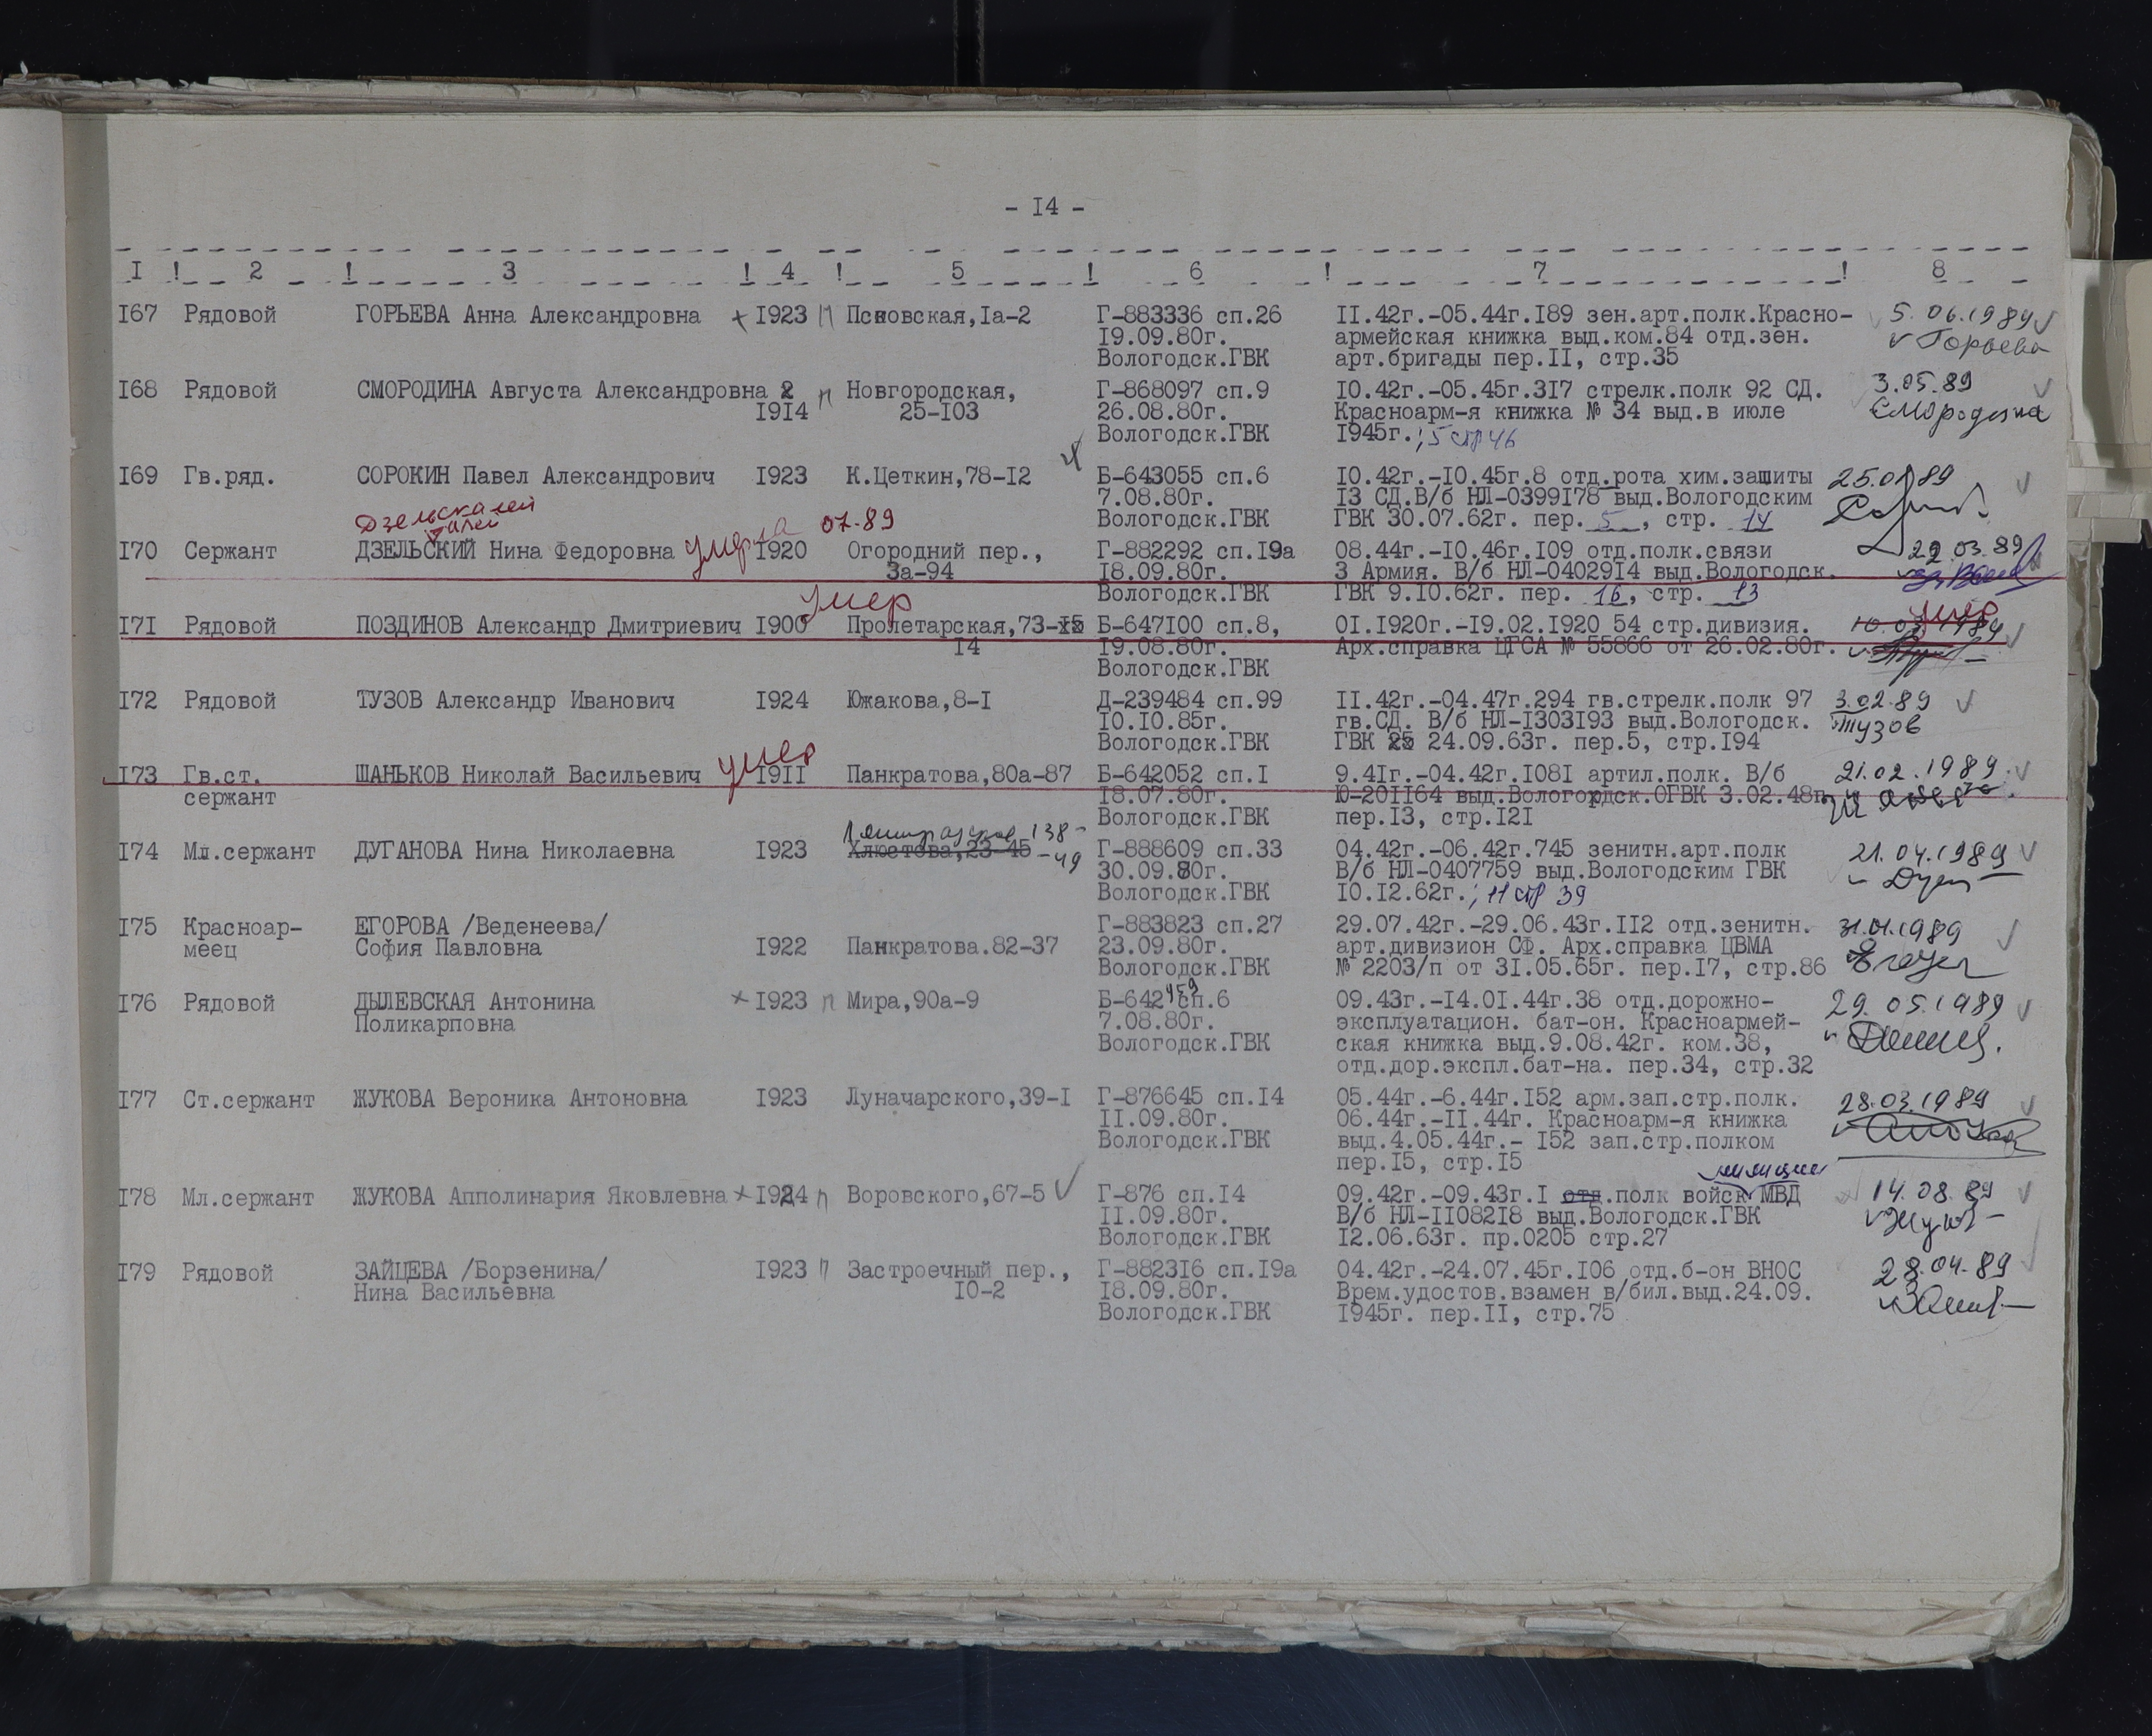 - I4 -
I ! 2 ! 3 ! 4 ! 5 ! 6 ! 7 ! 8
I67 Рядовой ГОРЬЕВА Анна Александровна + I923 п Псковская,Iа-2 Г-883336 сп.26 II.42г.-05.44г.I89 зен.арт.полк.Красно- 5.06.1989
I9.09.80г. армейская книжка выд.ком.84 отд.зен. Горьева
Вологодск.ГВК арт.бригады пер.II, стр.35
I68 Рядовой СМОРОДИНА Августа Александровна п Новгородская, Г-868097 сп.9 I0.42г.-05.45г.3I7 стрелк.полк 92 СД. 3.05.89
I9I4 25-I03 26.08.80г. Красноарм-я книжка № 34 выд.в июле Смородина
Вологодск.ГВК I945г.; 5 стр 46
I69 Гв.ряд. СОРОКИН Павел Александрович I923 К.Цеткин,78-I2 Б-643055 сп.6 I0.42г.-I0.45г.8 отд.рота хим.защиты 25.01 89
7.08.80г. I3 СД.В/б НЛ-0399I78 выд.Вологодским
Вологодск.ГВК ГВК 30.07.62г. пер. 5, стр. 14
умерла 07.89
I70 Сержант ДЗЕЛЬСКИЙ Нина Федоровна I920 Огородний пер., Г-882292 сп.I9а 08.44г.-I0.46г.I09 отд.полк.связи 29.03.89
3а-94 I8.09.80г. 3 Армия. В/б НЛ-04029I4 выд.Вологодск.
Вологодск.ГВК ГВК 9.I0.62г. пер. 16, стр. 13
умер умер
I7I Рядовой ПОЗДИНОВ Александр Дмитриевич I900 Пролетарская,73-I5 Б-647I00 сп.8, 0I.I920г.-I9.02.I920 54 стр.дивизия.
I4 I9.08.80г. Арх.справка ЦГСА № 55866 от 26.02.80г.
Вологодск.ГВК
I72 Рядовой ТУЗОВ Александр Иванович I924 Южакова,8-I Д-239484 сп.99 II.42г.-04.47г.294 гв.стрелк.полк 97 3.02.89
I0.I0.85г. гв.СД. В/б НЛ-I303I93 выд.Вологодск. Тузов
Вологодск.ГВК ГВК 25 24.09.63г. пер.5, стр.I94
умер
I73 Гв.ст. ШАНЬКОВ Николай Васильевич I9II Панкратова,80а-87 Б-642052 сп.I 9.4Iг.-04.42г.I08I артил.полк. В/б 21.02.1989
сержант I8.07.80г. Ю-20II64 выд.Вологордск.ОГВК 3.02.48г.
Вологодск.ГВК пер.I3, стр.I2I
138-
I74 Мл.сержант ДУГАНОВА Нина Николаевна I923 Хлюстова,23-45 -49 Г-888609 сп.33 04.42г.-06.42г.745 зенитн.арт.полк 21.04.1989
30.09.80г. В/б НЛ-0407759 выд.Вологодским ГВК
Вологодск.ГВК I0.I2.62г.; 11 стр 39
I75 Красноар- ЕГОРОВА /Веденеева/ Г-883823 сп.27 29.07.42г.-29.06.43г.II2 отд.зенитн. 31.01.1989
меец София Павловна I922 Панкратова.82-37 23.09.80г. арт.дивизион СФ. Арх.справка ЦВМА
Вологодск.ГВК № 2203/п от 3I.05.65г. пер.I7, стр.86
I76 Рядовой ДЫЛЕВСКАЯ Антонина + I923 п Мира,90а-9 Б-642459 сп.6 09.43г.-I4.0I.44г.38 отд.дорожно- 29.05.1989
Поликарповна 7.08.80г. эксплуатацион. бат-он. Красноармей-
Вологодск.ГВК ская книжка выд.9.08.42г. ком.38,
отд.дор.экспл.бат-на. пер.34, стр.32
I77 Ст.сержант ЖУКОВА Вероника Антоновна I923 Луначарского,39-I Г-876645 сп.I4 05.44г.-6.44г.I52 арм.зап.стр.полк. 28.03.1989
II.09.80г. 06.44г.-II.44г. Красноарм-я книжка
Вологодск.ГВК выд.4.05.44г.- I52 зап.стр.полком
пер.I5, стр.I5
милиции
I78 Мл.сержант ЖУКОВА Апполинария Яковлевна + I924 п Воровского,67-5 Г-876 сп.I4 09.42г.-09.43г.I отд.полк войск МВД 14.08.89
II.09.80г. В/б НЛ-II082I8 выд.Вологодск.ГВК
Вологодск.ГВК I2.06.63г. пр.0205 стр.27
I79 Рядовой ЗАЙЦЕВА /Борзенина/ I923 п Застроечный пер., Г-8823I6 сп.I9а 04.42г.-24.07.45г.I06 отд.б-он ВНОС 28.04.89
Нина Васильевна I0-2 I8.09.80г. Врем.удостов.взамен в/бил.выд.24.09.
Вологодск.ГВК I945г. пер.II, стр.75